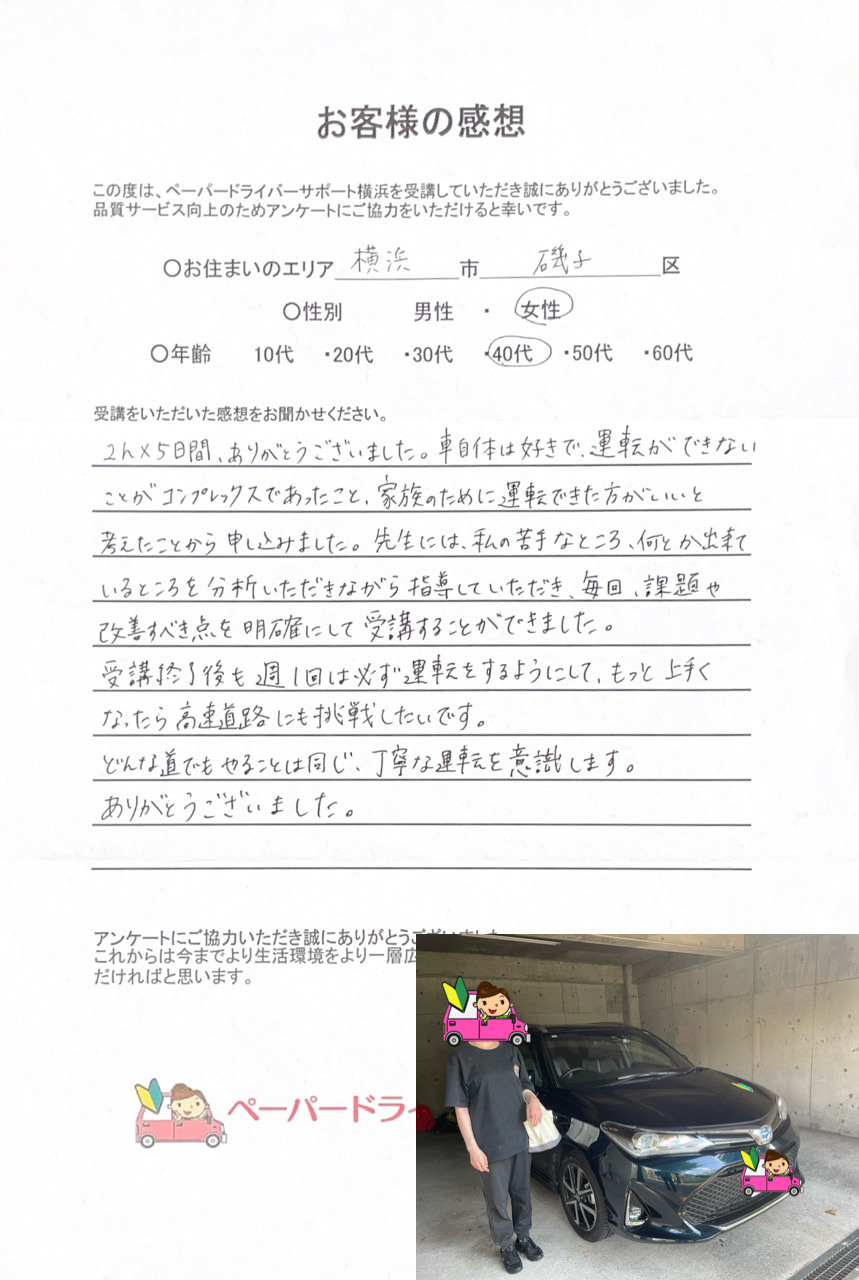 お客様の感想
この度は、ペーパードライバーサポート横浜を受講していただき誠にありがとうございました。
品質サービス向上のためアンケートにご協力をいただけると幸いです。
〇お住まいのエリア 横浜 市 磯子 区
〇性別 男性 ・ 女性
〇年齢 10代 ・20代 ・30代 ・40代 ・50代 ・60代
受講をいただいた感想をお聞かせください。
2h×5日間、ありがとうございました。車自体は好きで、運転ができない
ことがコンプレックスであったこと、家族のために運転できた方がいいと
考えたことから申し込みました。先生には、私の苦手なところ、何とか出来て
いるところを分析いただきながら指導していただき、毎回、課題や
改善すべき点を明確にして受講することができました。
受講終了後も週1回は必ず運転をするようにして、もっと上手く
なったら高速道路にも挑戦したいです。
どんな道でもやることは同じ、丁寧な運転を意識します。
ありがとうございました。
アンケートにご協力いただき誠にありがとうございました
これからは今までより生活環境をより一層広
だければと思います。
ペーパードライ